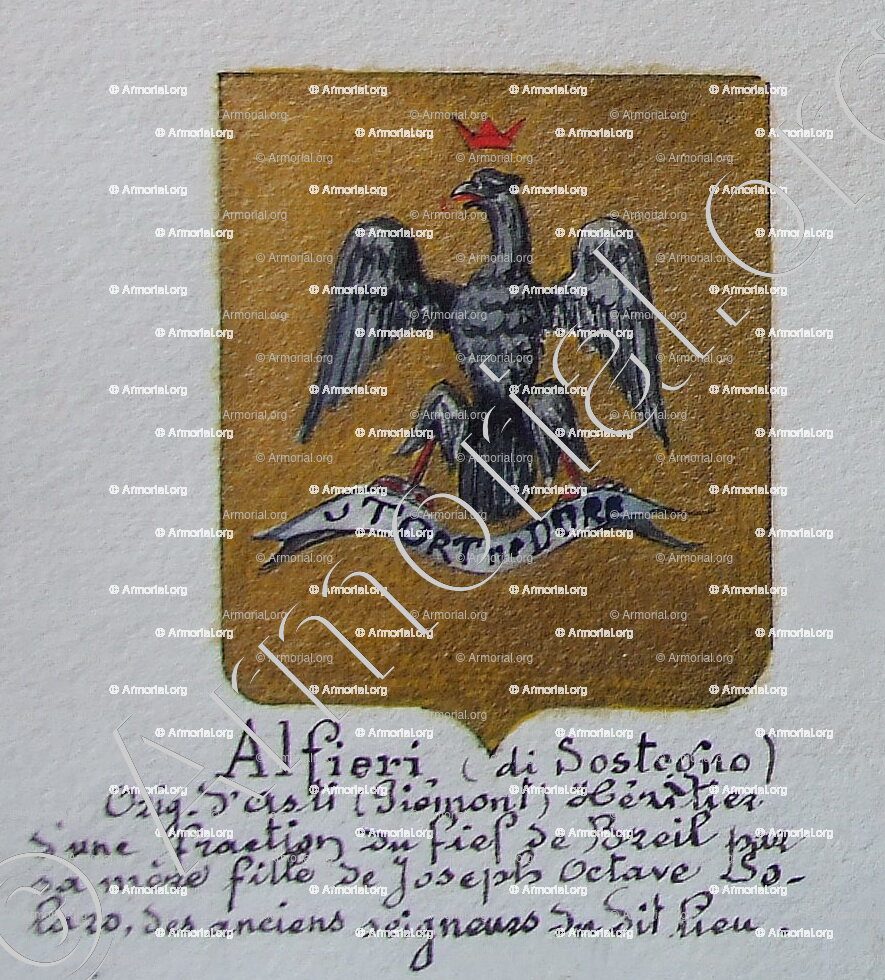 UT FORTIOR DURO
Alfieri (di Sostegno)
Orig. d'Asti (Piémont) Héritier
d'une fraction du fief de Breil par
sa mère fille de Joseph Octave So-
laro, des anciens seigneurs du dit lieu.
© Armorial.org